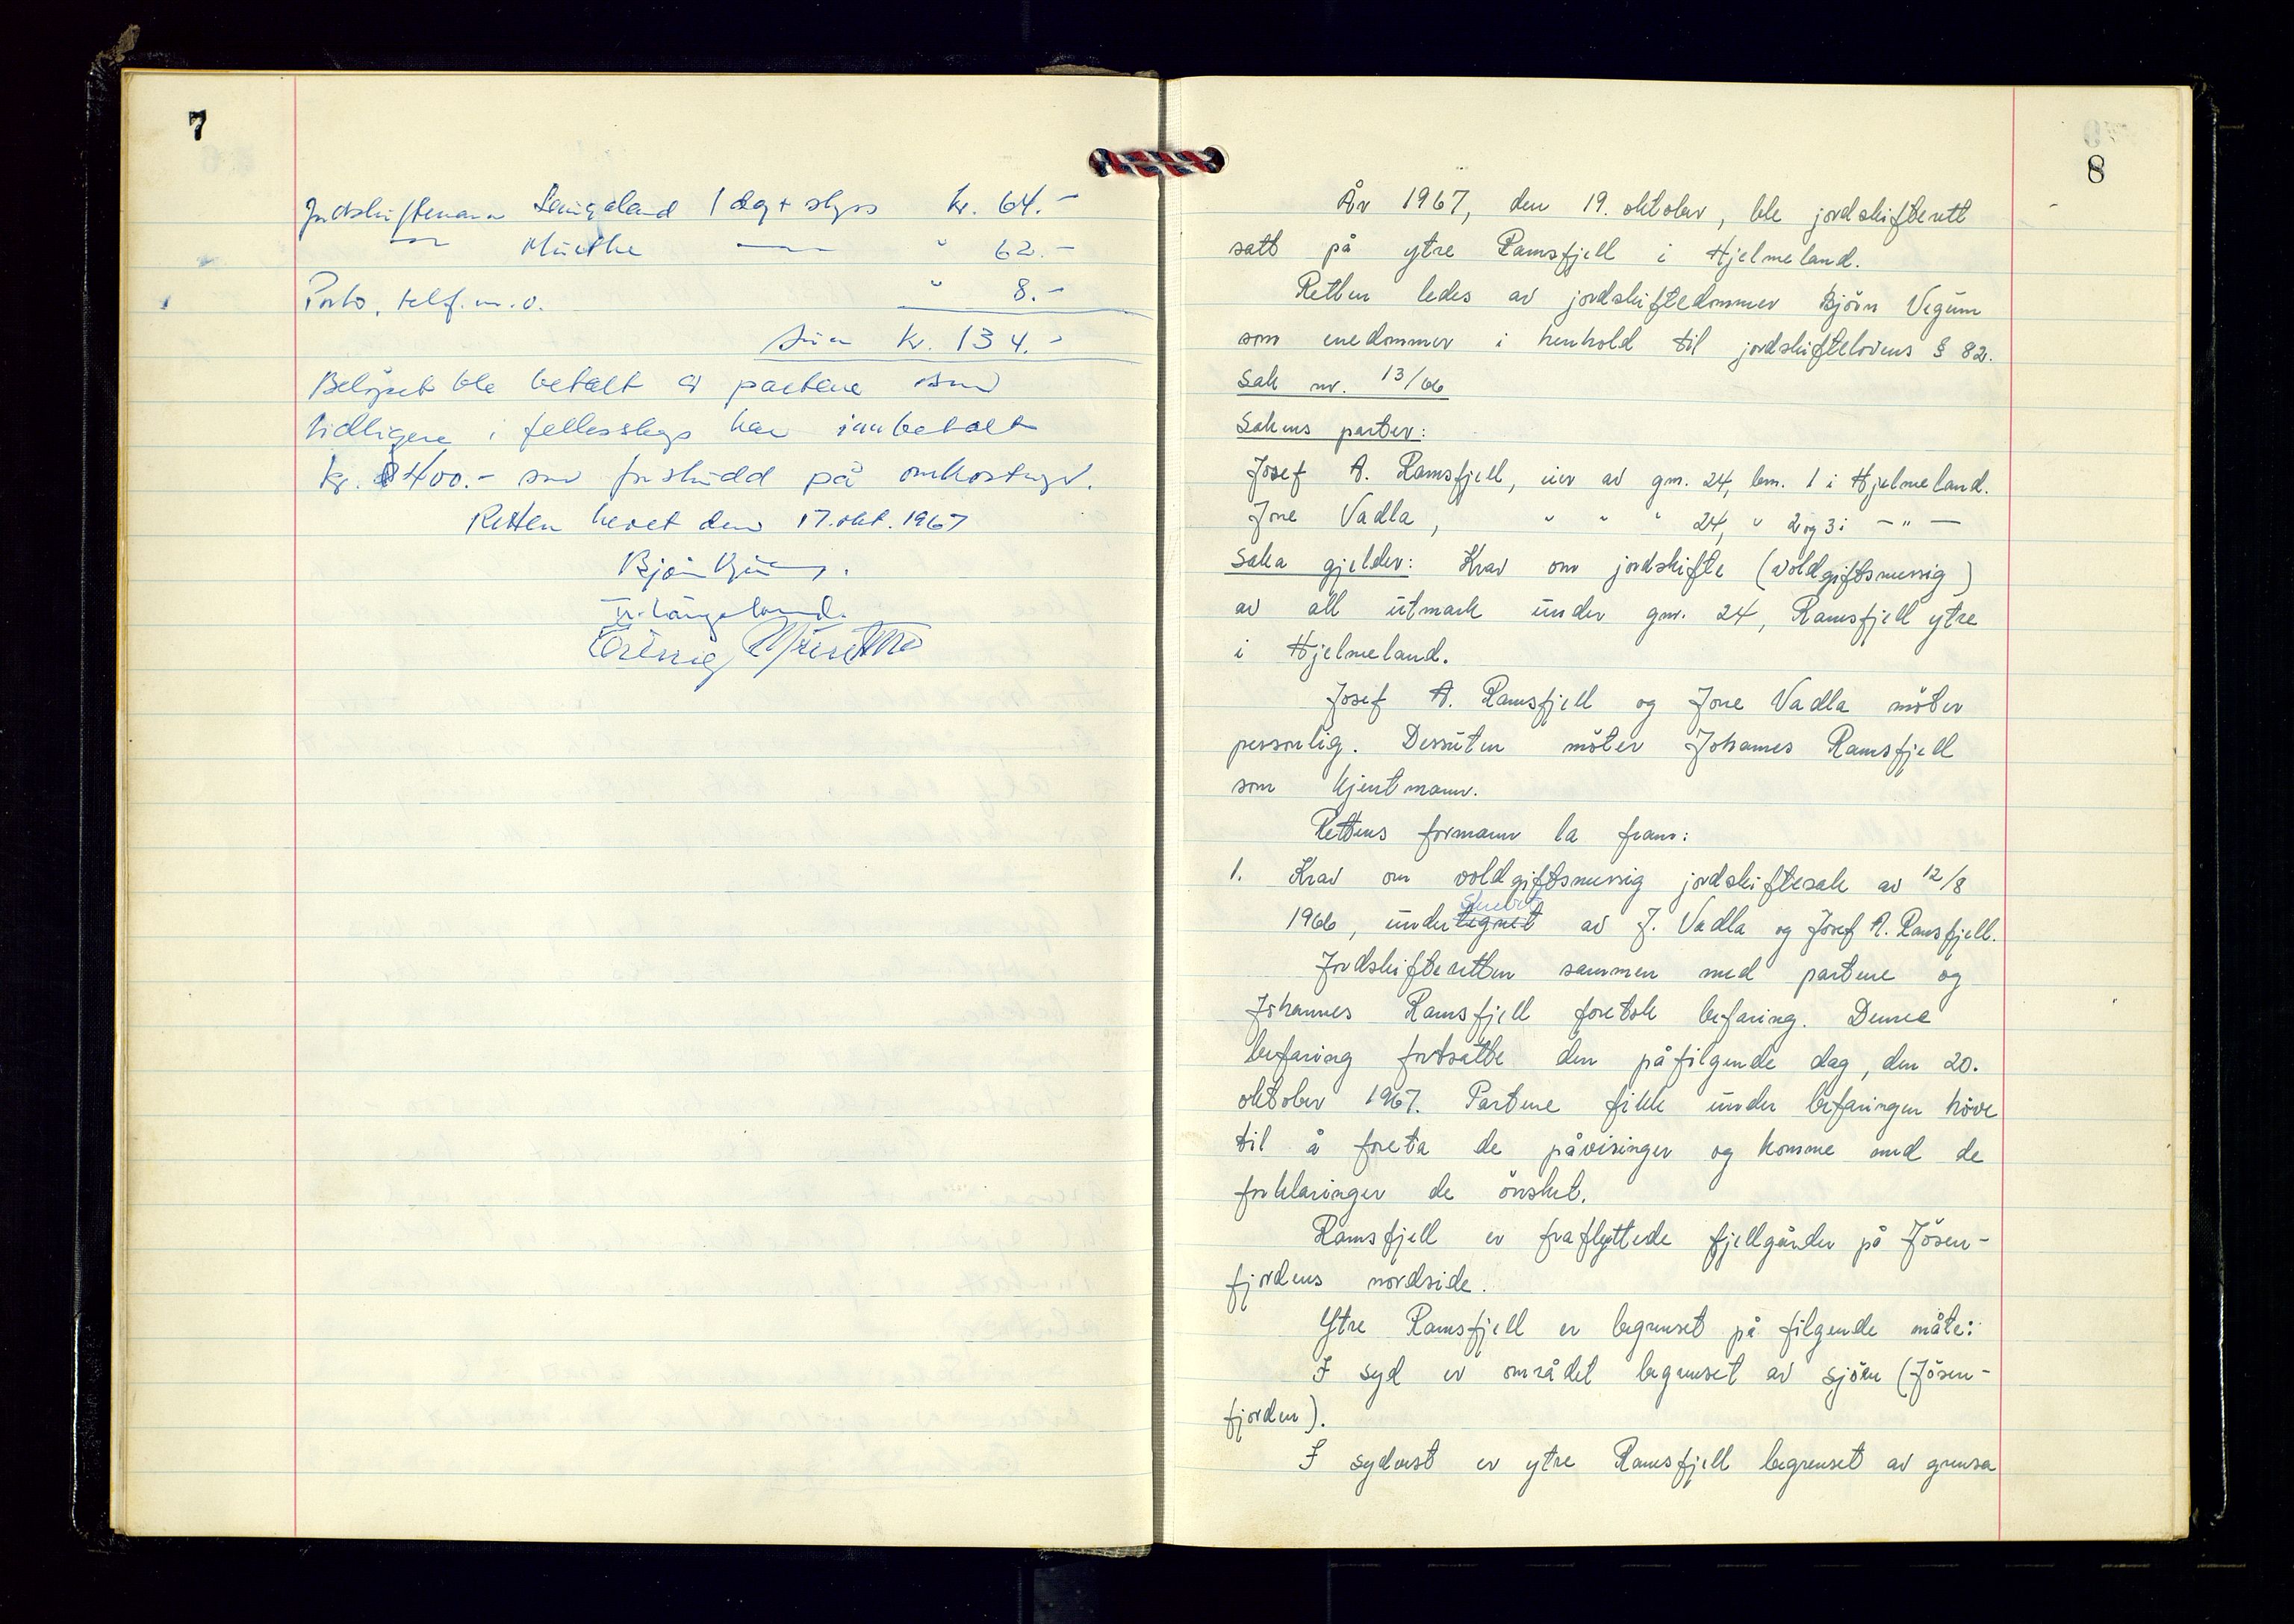 7
Jordskiftemann Laugaland 1 dag + skyss kr. 64.-
—"— Müethe —"— " 62.-
Porto, telf. m.v. " 8.-
Sum kr. 134.-
Beløpet ble betalt av partene som
tidligere i fellesskap har innbetalt
kr. 400.- som forskudd på omkostninger.
Retten hevet den 17. okt. 1967
8
År 1967, den 19. oktober, ble jordskifterett
satt på ytre Ramsfjell i Hjelmeland.
Retten ledes av jordskiftedommer Bjørn Vegum
som enedommer i henhold til jordskiftelovens § 82.
Sak nr. 13/66
Sakens parter:
Josef A. Ramsfjell, eier av gnr. 24, bnr. 1 i Hjelmeland.
Jone Vadla, " " " 24, " 2 og 3 i —"—
Saka gjelder: Krav om jordskifte (voldgiftsmessig)
av all utmark under gnr. 24, Ramsfjell ytre
i Hjelmeland.
Josef A. Ramsfjell og Jone Vadla møter
personlig. Dessuten møter Johannes Ramsfjell
som kjentmann.
Rettens formann la fram:
1. Krav om voldgiftsmessig jordskiftesak av 12/8
skrevet
1966, undertegnet av J. Vadla og Josef A. Ramsfjell.
Jordskifteretten sammen med partene og
Johannes Ramsfjell foretok befaring. Denne
befaring fortsatte den påfølgende dag, den 20.
oktober 1967. Partene fikk under befaringen høve
til å foreta de påvisinger og komme med de
forklaringer de ønsket.
Ramsfjell er fraflyttede fjellgårder på Jøsen-
fjordens nordside.
Ytre Ramsfjell er begrenset på følgende måte:
I syd er området begrenset av sjøen (Jøsen-
fjorden).
I sydvest er ytre Ramsfjell begrenset av grensa